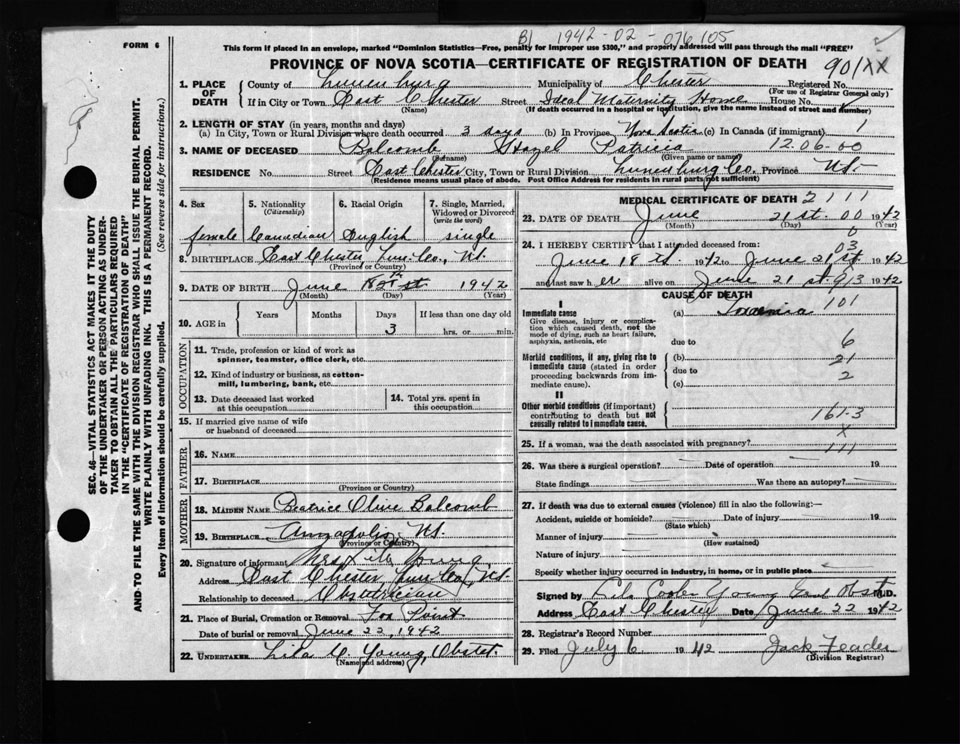 B) 1942-02-076105
FORM 6
This form if placed in an envelope, marked "Dominion Statistics—Free, penalty for improper use $300," and properly addressed will pass through the mail "FREE"
PROVINCE OF NOVA SCOTIA—CERTIFICATE OF REGISTRATION OF DEATH
901XX
1. PLACE OF DEATH
County of Lunenburg Municipality of Chester Registered No.
(For use of Registrar General only)
If in City or Town East Chester Street Ideal Maternity Home House No.
(Name) (If death occurred in a hospital or institution, give the name instead of street and number)
2. LENGTH OF STAY (in years, months and days)
(a) In City, Town or Rural Division where death occurred 3 days (b) In Province Nova Scotia (c) In Canada (if immigrant) 1
3. NAME OF DECEASED Balcomb Hazel Patricia 12.06-00
(Surname) (Given name or names)
RESIDENCE No. Street East Chester City, Town or Rural Division Lunenburg Co. Province NS.
(Residence means usual place of abode. Post Office Address for residents in rural parts not sufficient)
4. Sex
5. Nationality (Citizenship)
6. Racial Origin
7. Single, Married, Widowed or Divorced (write the word)
female Canadian English single
8. BIRTHPLACE East Chester, Lun. Co., NS.
(Province or Country)
9. DATE OF BIRTH June 1942
(Month) (Day) (Year)
10. AGE in Years Months Days If less than one day old
3 hrs. or min.
OCCUPATION
11. Trade, profession or kind of work as spinner, teamster, office clerk, etc.
12. Kind of industry or business, as cotton-mill, lumbering, bank, etc.
13. Date deceased last worked at this occupation
14. Total yrs. spent in this occupation
15. If married give name of wife or husband of deceased
FATHER
16. NAME
17. BIRTHPLACE
(Province or Country)
MOTHER
18. MAIDEN NAME Beatrice Olive Balcomb
19. BIRTHPLACE Annapolis, NS.
(Province or Country)
20. Signature of informant Mrs Lila Young
Address East Chester, Lun. Co., NS.
Relationship to deceased Obstetrician
21. Place of Burial, Cremation or Removal Fox Point
Date of burial or removal June 22, 1942
22. UNDERTAKER Lila C. Young, Obstet.
(Name and address)
MEDICAL CERTIFICATE OF DEATH 2111
23. DATE OF DEATH June 21st. 00 1942
(Month) (Day) (Year)
0
24. I HEREBY CERTIFY that I attended deceased from:
03
June 18th 1942 to June 21st 1942
and last saw her alive on June 21st. 913 1942
CAUSE OF DEATH
I
Immediate cause
Give disease, injury or complication which caused death, not the mode of dying, such as heart failure, asphyxia, asthenia, etc
(a) 101
due to 6
Morbid conditions, if any, giving rise to immediate cause (stated in order proceeding backwards from immediate cause).
(b) 21
due to 2
(c)
II
Other morbid conditions (if important) contributing to death but not causally related to immediate cause.
161-3
X
25. If a woman, was the death associated with pregnancy? 111
26. Was there a surgical operation? Date of operation 19
State findings Was there an autopsy?
27. If death was due to external causes (violence) fill in also the following:
Accident, suicide or homicide? Date of injury 19
(State which)
Manner of injury
(How sustained)
Nature of injury
Specify whether injury occurred in industry, in home, or in public place
Signed by Lila Coolen Young M.D.
Address East Chester Date June 22 1942
28. Registrar's Record Number
29. Filed July 6 1942 Jack Feader
(Division Registrar)
SEC. 46—VITAL STATISTICS ACT MAKES IT THE DUTY
OF THE UNDERTAKER OR PERSON ACTING AS UNDER-
TAKER TO OBTAIN ALL THE PARTICULARS REQUIRED
IN THE "CERTIFICATE OF REGISTRATION OF DEATH"
AND TO FILE THE SAME WITH THE DIVISION REGISTRAR WHO SHALL ISSUE THE BURIAL PERMIT.
WRITE PLAINLY WITH UNFADING INK. THIS IS A PERMANENT RECORD.
Every item of information should be carefully supplied. (See reverse side for instructions.)